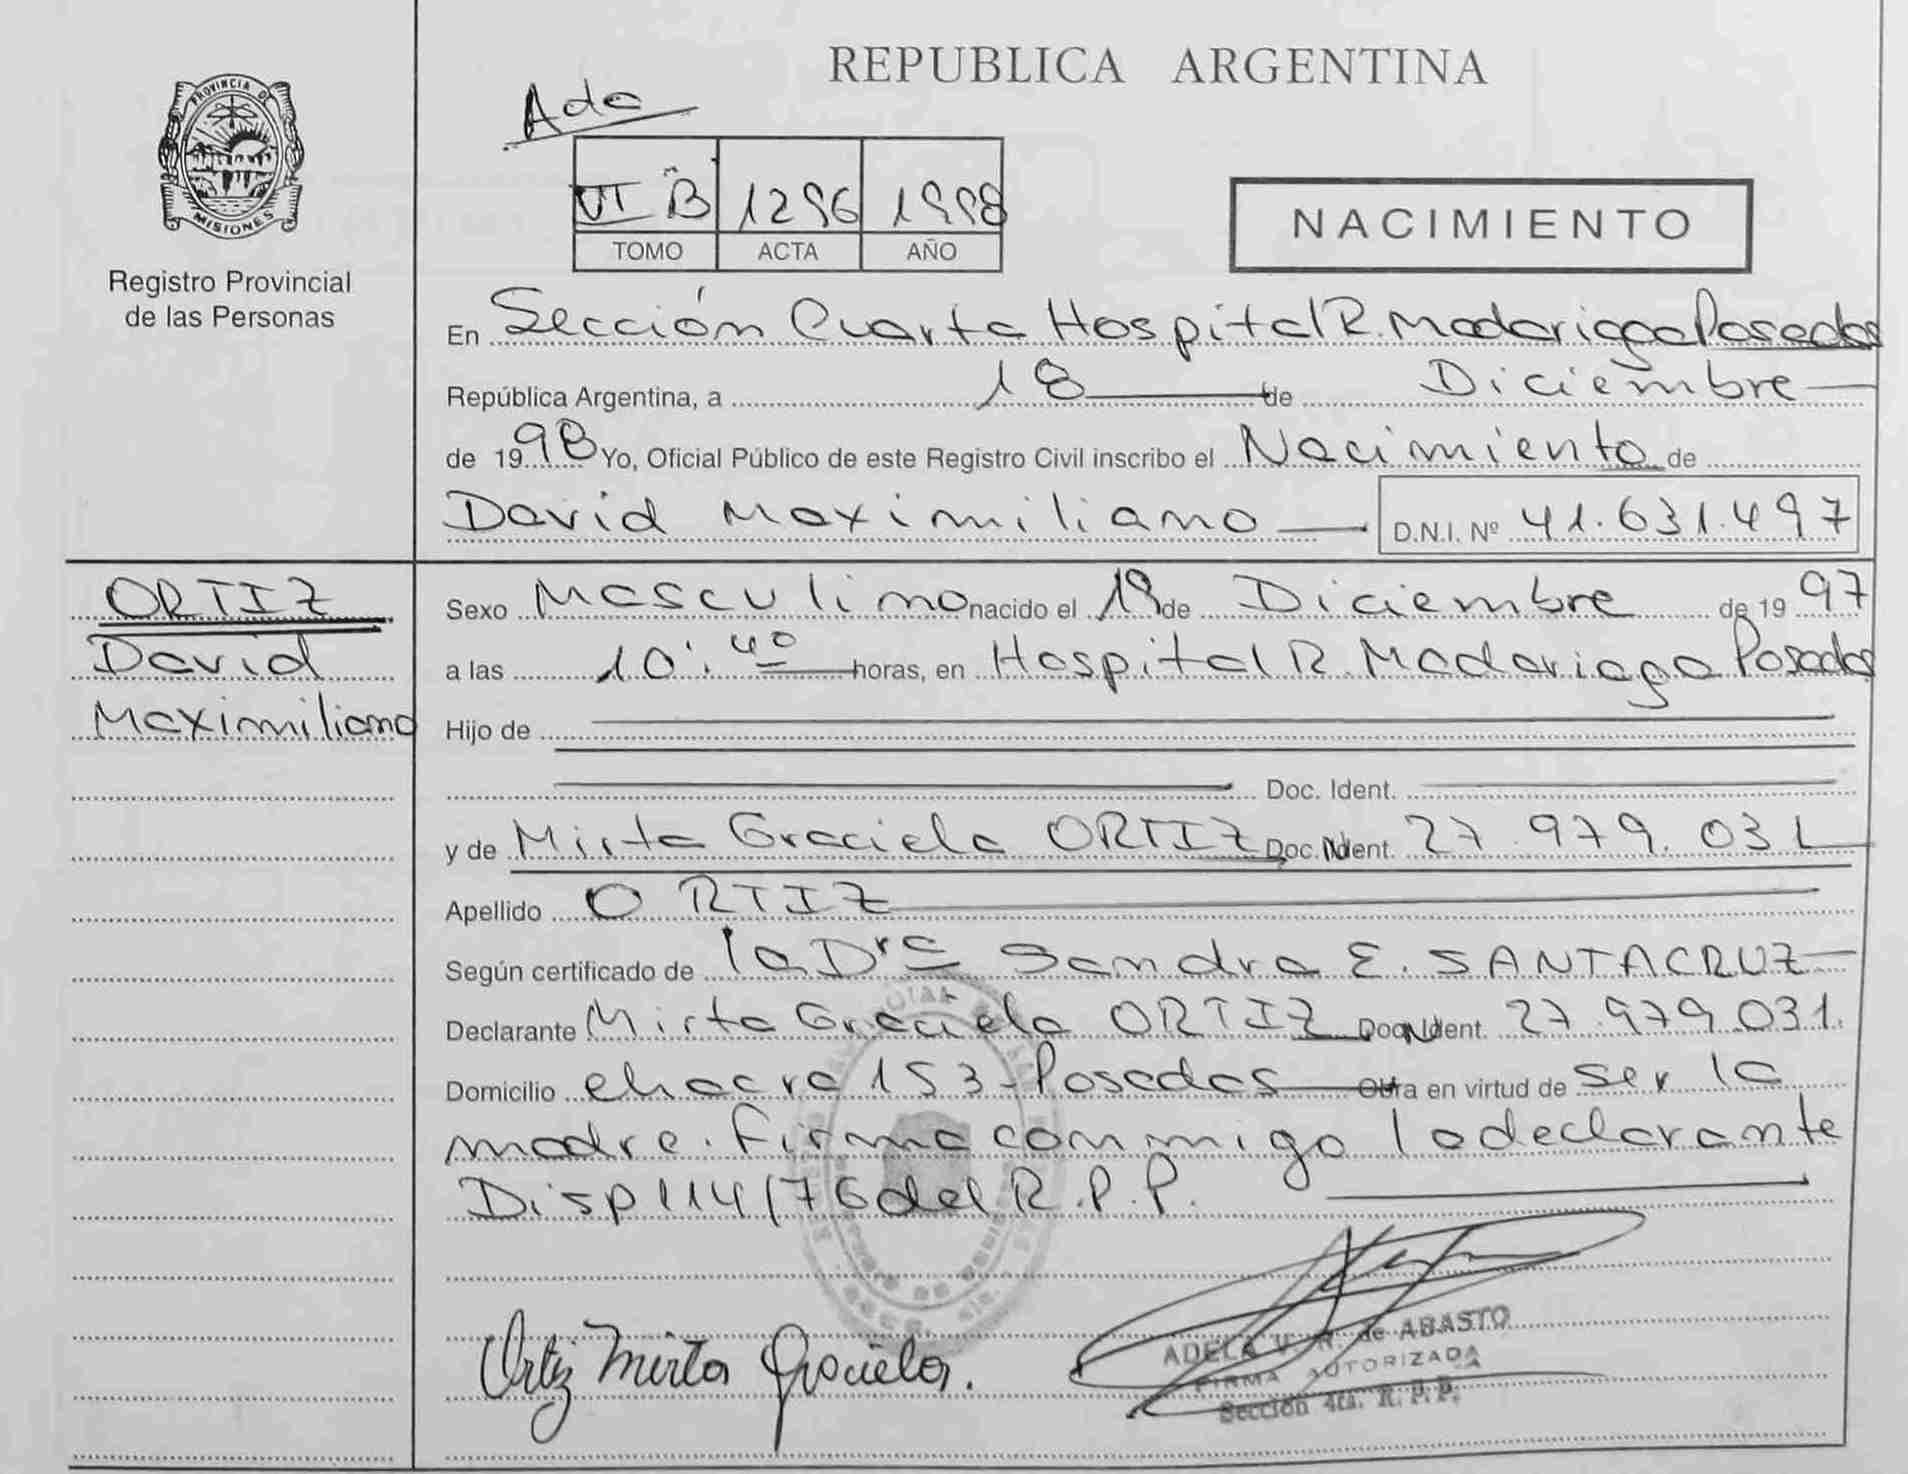 REPUBLICA ARGENTINA
PROVINCIA DE
MISIONES
Registro Provincial
de las Personas
Ada
VI B 1296 1998
TOMO ACTA AÑO
NACIMIENTO
En Sección Cuarta Hospital R. Madariaga Posadas
República Argentina, a 18 de Diciembre
de 1998 Yo, Oficial Público de este Registro Civil inscribo el Nacimiento de
David Maximiliano D.N.I. Nº 41.631.497
ORTIZ
David
Maximiliano
Sexo Masculino nacido el 19 de Diciembre de 1997
a las 10:40 horas, en Hospital R. Madariaga Posadas
Hijo de
Doc. Ident.
y de Mirta Graciela ORTIZ Doc. Ident. 27.979.031
Apellido ORTIZ
Según certificado de la Dra Sandra E. SANTACRUZ
Declarante Mirta Graciela ORTIZ Doc. Ident. 27.979.031.
Domicilio chacra 153-Posadas Obra en virtud de ser la
madre. Firma conmigo la declarante
Disp 114/76 del R.P.P.
Ortiz Mirta Graciela.
ADELA V. N. de ABASTO
FIRMA AUTORIZADA
Sección 4ta. R. P. P.